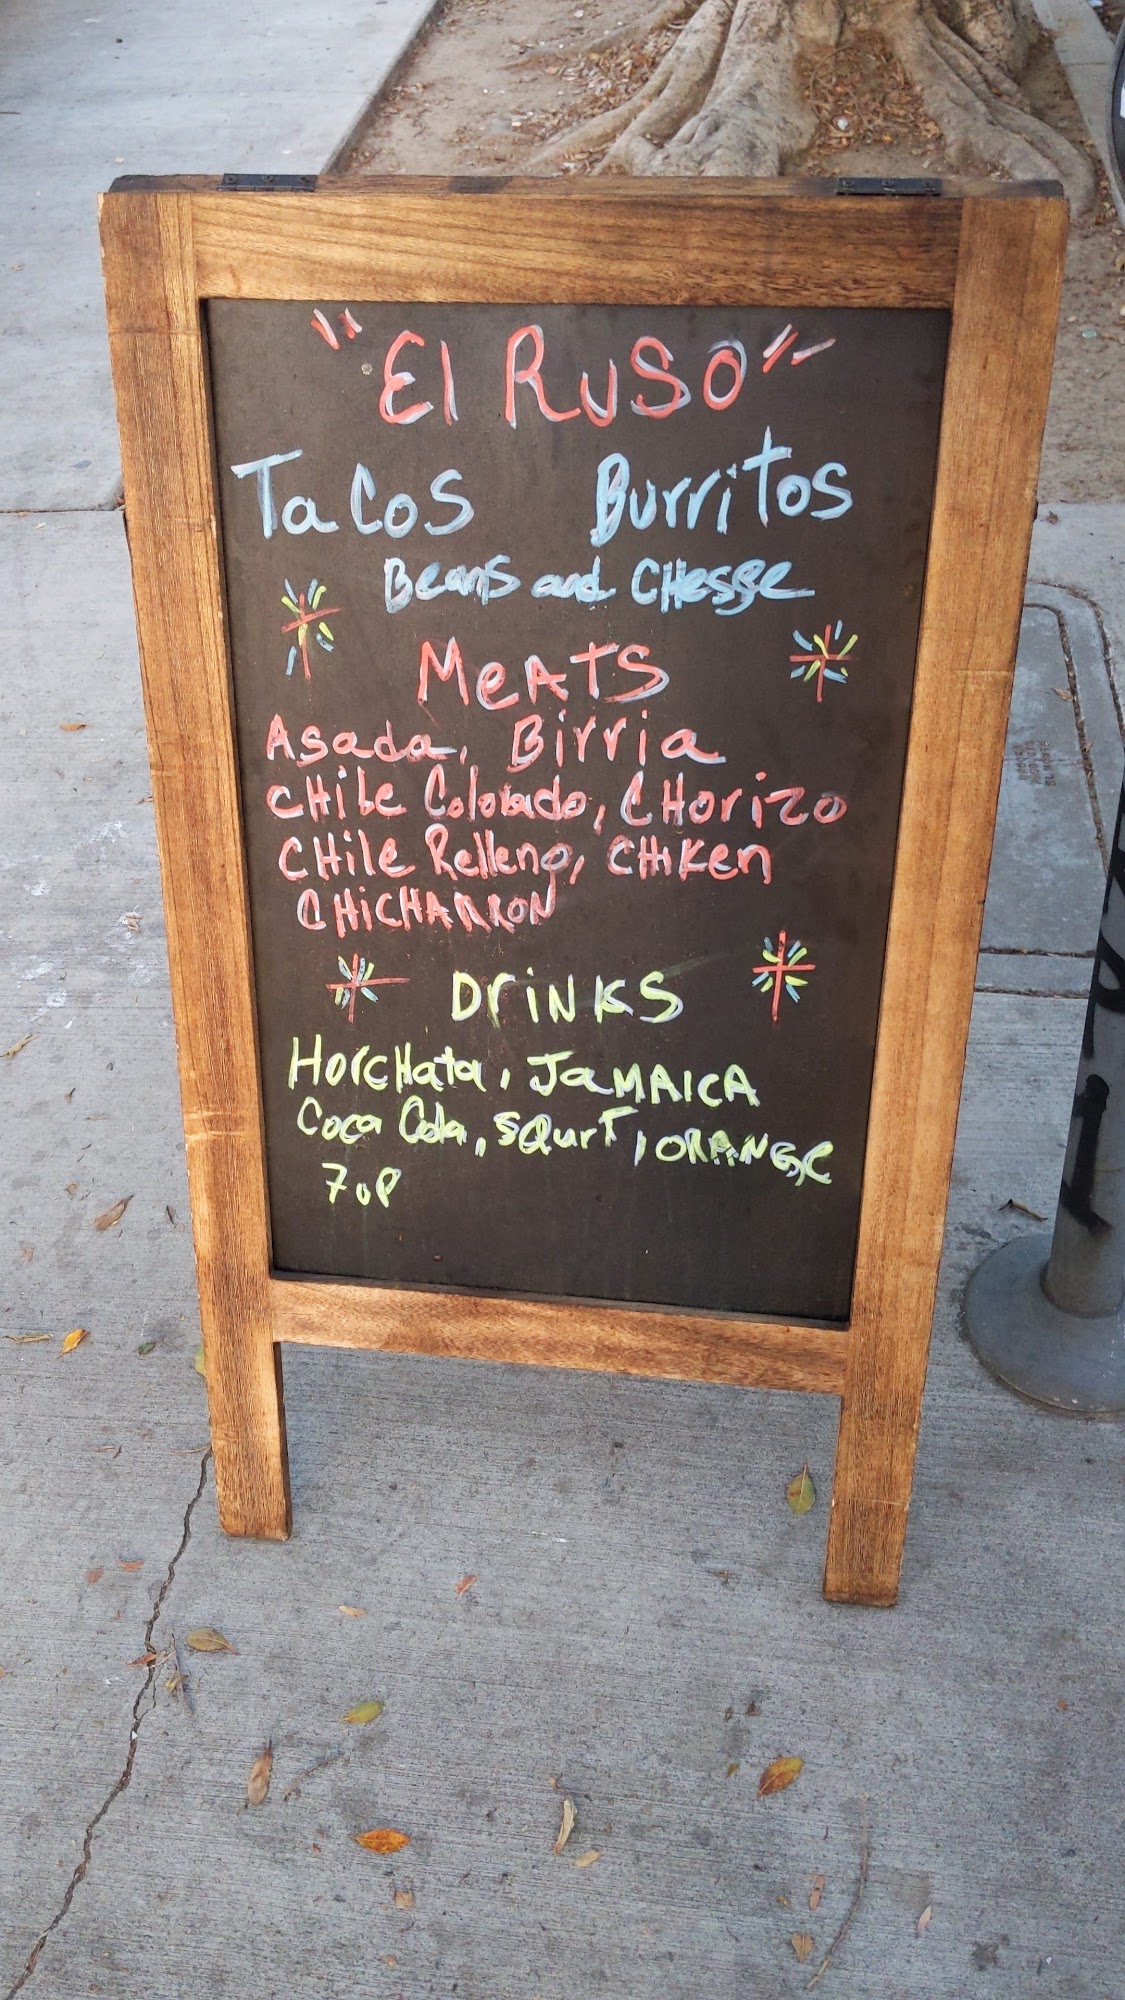 "El RuSO"
Tacos Burritos
Beans and CHesse
MeATS
Asada, Birria
CHile Colorado, CHorizo
CHile Relleno, CHiKen
CHiCHARRON
DriNKS
HorcHata, JaMAICA
Coca Cola, SQurT, ORANGE
7up